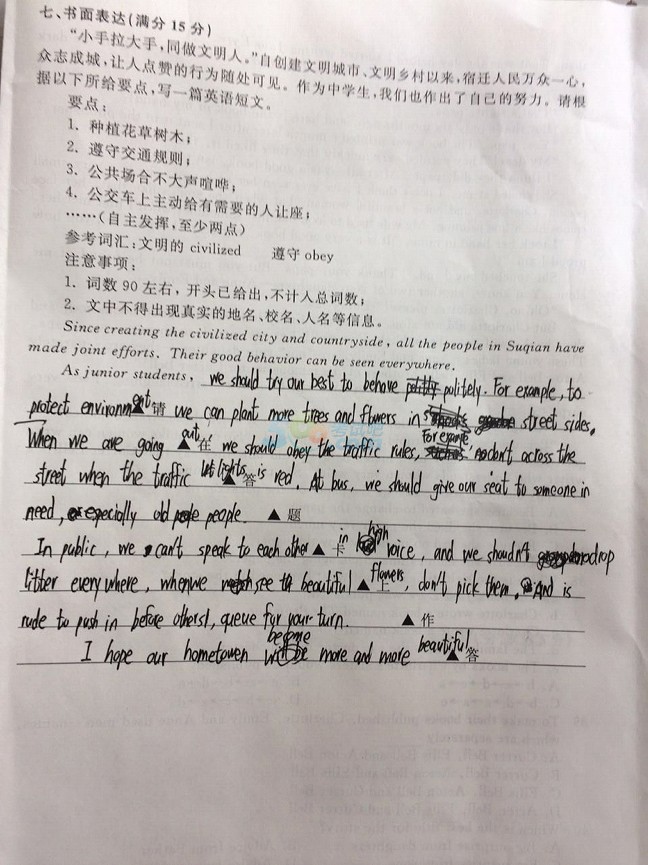 七、书面表达(满分 15 分)
“小手拉大手,同做文明人。”自创建文明城市、文明乡村以来,宿迁人民万众一心,
众志成城,让人点赞的行为随处可见。作为中学生,我们也作出了自己的努力。请根
据以下所给要点,写一篇英语短文。
要点:
1. 种植花草树木;
2. 遵守交通规则;
3. 公共场合不大声喧哗;
4. 公交车上主动给有需要的人让座;
……(自主发挥,至少两点)
参考词汇:文明的 civilized 遵守 obey
注意事项:
1. 词数 90 左右,开头已给出,不计入总词数;
2. 文中不得出现真实的地名、校名、人名等信息。
Since creating the civilized city and countryside, all the people in Suqian have
made joint efforts. Their good behavior can be seen everywhere.
As junior students, we should try our best to behave politely. For example, to
protect environment ▲ 请 we can plant more trees and flowers in street sides.
When we are going out ▲ 在 we should obey the traffic rules, for example, don't across the
street when the traffic lights ▲ 答 is red. At bus, we should give our seat to someone in
need, especially old people. ▲ 题
In public, we can't speak to each other ▲ in 卡 high voice, and we shoudn't drop
litter everywhere, when we see beautiful ▲ flowers 上, don't pick them, And is
rude to push in before others, queue for your turn. ▲ 作
I hope our hometowen become more and more beautiful ▲ 答